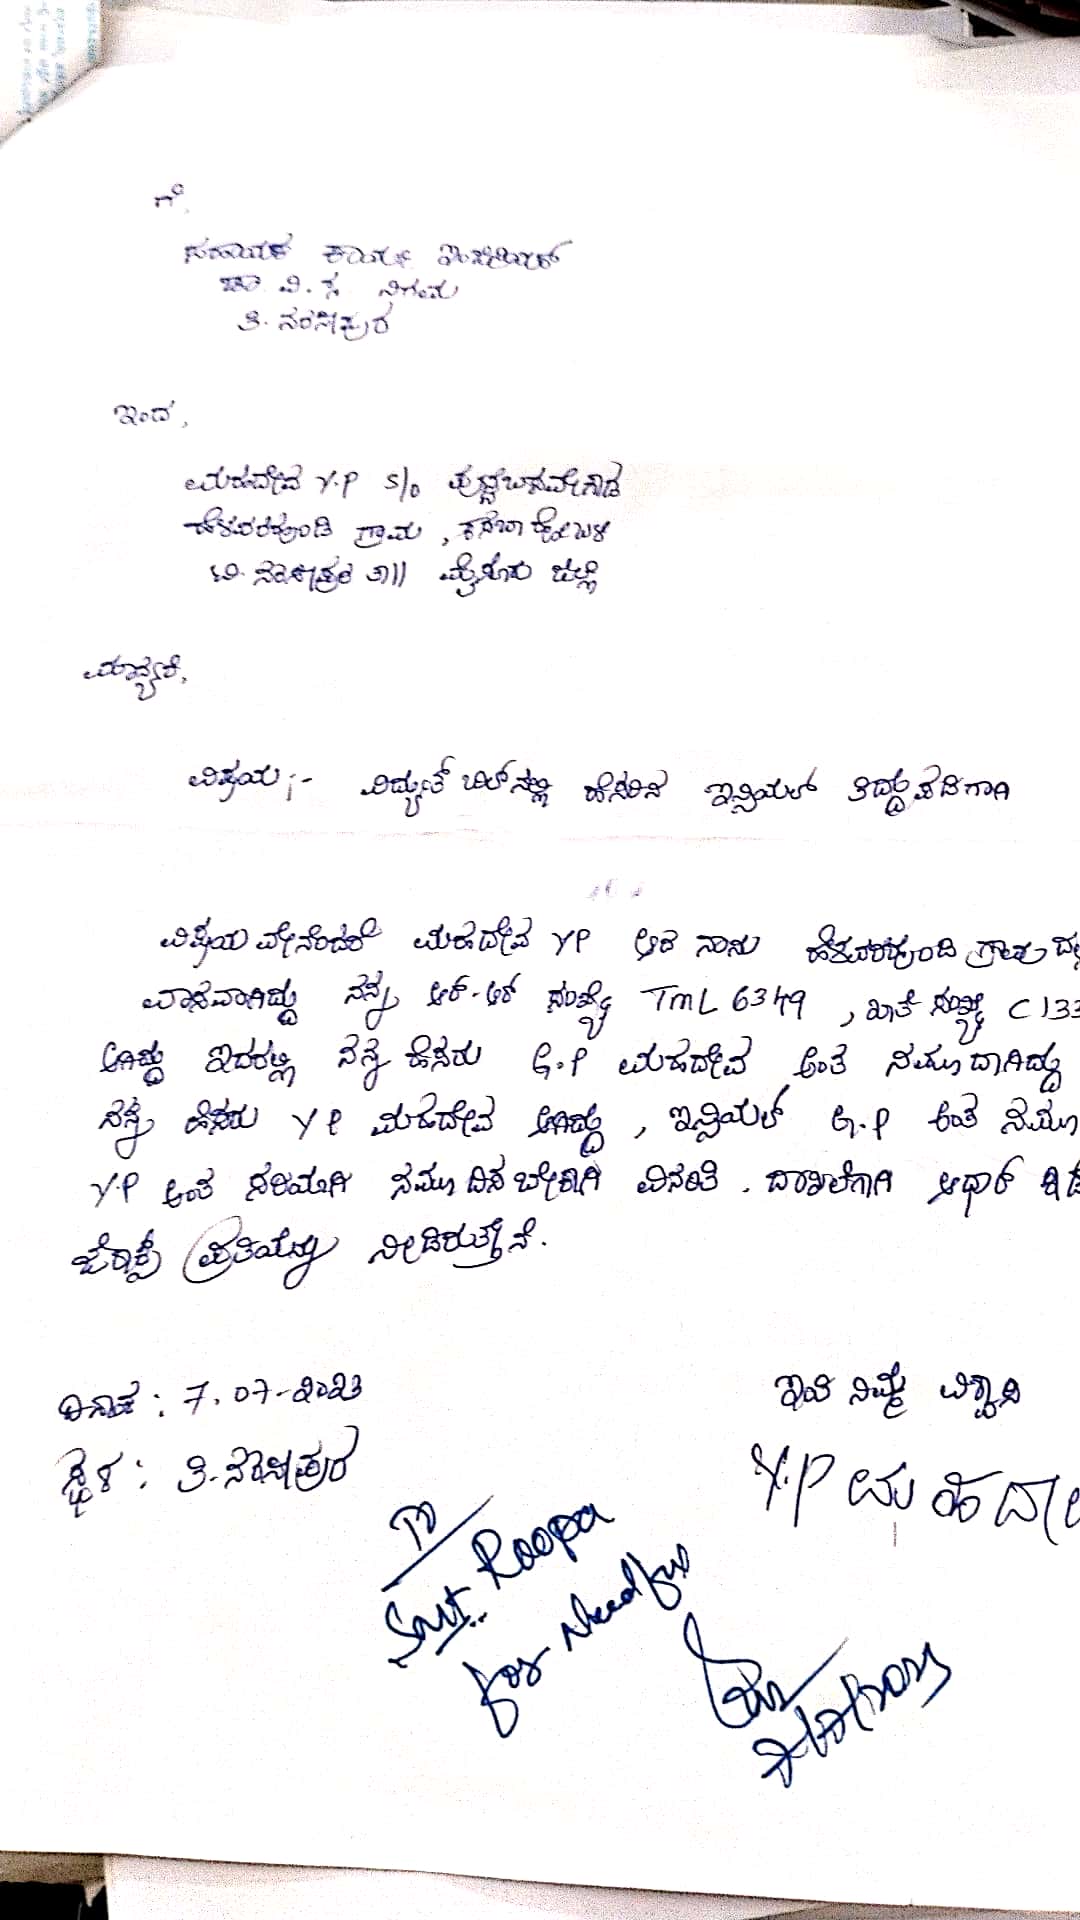 ಗೆ,
ಸಹಾಯಕ ಕಾರ್ಯ ಇಂಜಿನಿಯರ್
ಚಾ. ವಿ. ಸ ನಿಗಮ
ತಿ. ನರಸೀಪುರ
ಇಂದ,
ಮಹದೇವ Y.P S/o ಪುಟ್ಟಬಸವೇಗೌಡ
ಗ್ರಾಮ, ಕಸಬಾ ಹೋಬಳಿ
ಟಿ. ನರಸೀಪುರ ತಾ|| ಮೈಸೂರು ಜಿಲ್ಲೆ
ಮಾನ್ಯರೆ,
ವಿಷಯ ;- ವಿದ್ಯುತ್ ಬಿಲ್ ನಲ್ಲಿ ಹೆಸರಿನ ಇನ್ಸಿಯಲ್ ತಿದ್ದುಪಡಿಗಾಗಿ
ವಿಷಯವೇನೆಂದರೆ ಮಹದೇವ YP ಆದ ನಾನು ಗ್ರಾಮದಲ್ಲಿ
ವಾಸವಾಗಿದ್ದು ನನ್ನ ಆರ್-ಆರ್ ಸಂಖ್ಯೆ TML 6349 , ಖಾತೆ ಸಂಖ್ಯೆ C133
ಆಗಿದ್ದು ಇದರಲ್ಲಿ ನನ್ನ ಹೆಸರು G.P ಮಹದೇವ ಅಂತ ನಮೂದಾಗಿದ್ದು
ನನ್ನ ಹೆಸರು Y P ಮಹದೇವ ಆಗಿದ್ದು , ಇನ್ಸಿಯಲ್ G.P ಅಂತ ನಮೂ
Y.P ಅಂತ ಸರಿಯಾಗಿ ನಮೂದಿಸಬೇಕಾಗಿ ವಿನಂತಿ. ದಾಖಲೆಗಾಗಿ ಆಧಾರ್
ಜೆರಾಕ್ಸ್ ಪ್ರತಿಯನ್ನು ನೀಡಿರುತ್ತೇನೆ.
ದಿನಾಂಕ : 7.07-2023
ಸ್ಥಳ : ತಿ.ನರಸೀಪುರ
ಇಂತಿ ನಿಮ್ಮ ವಿಶ್ವಾಸಿ
Y.P ಮಹದೇ
To
Smt. Roopa
for needful